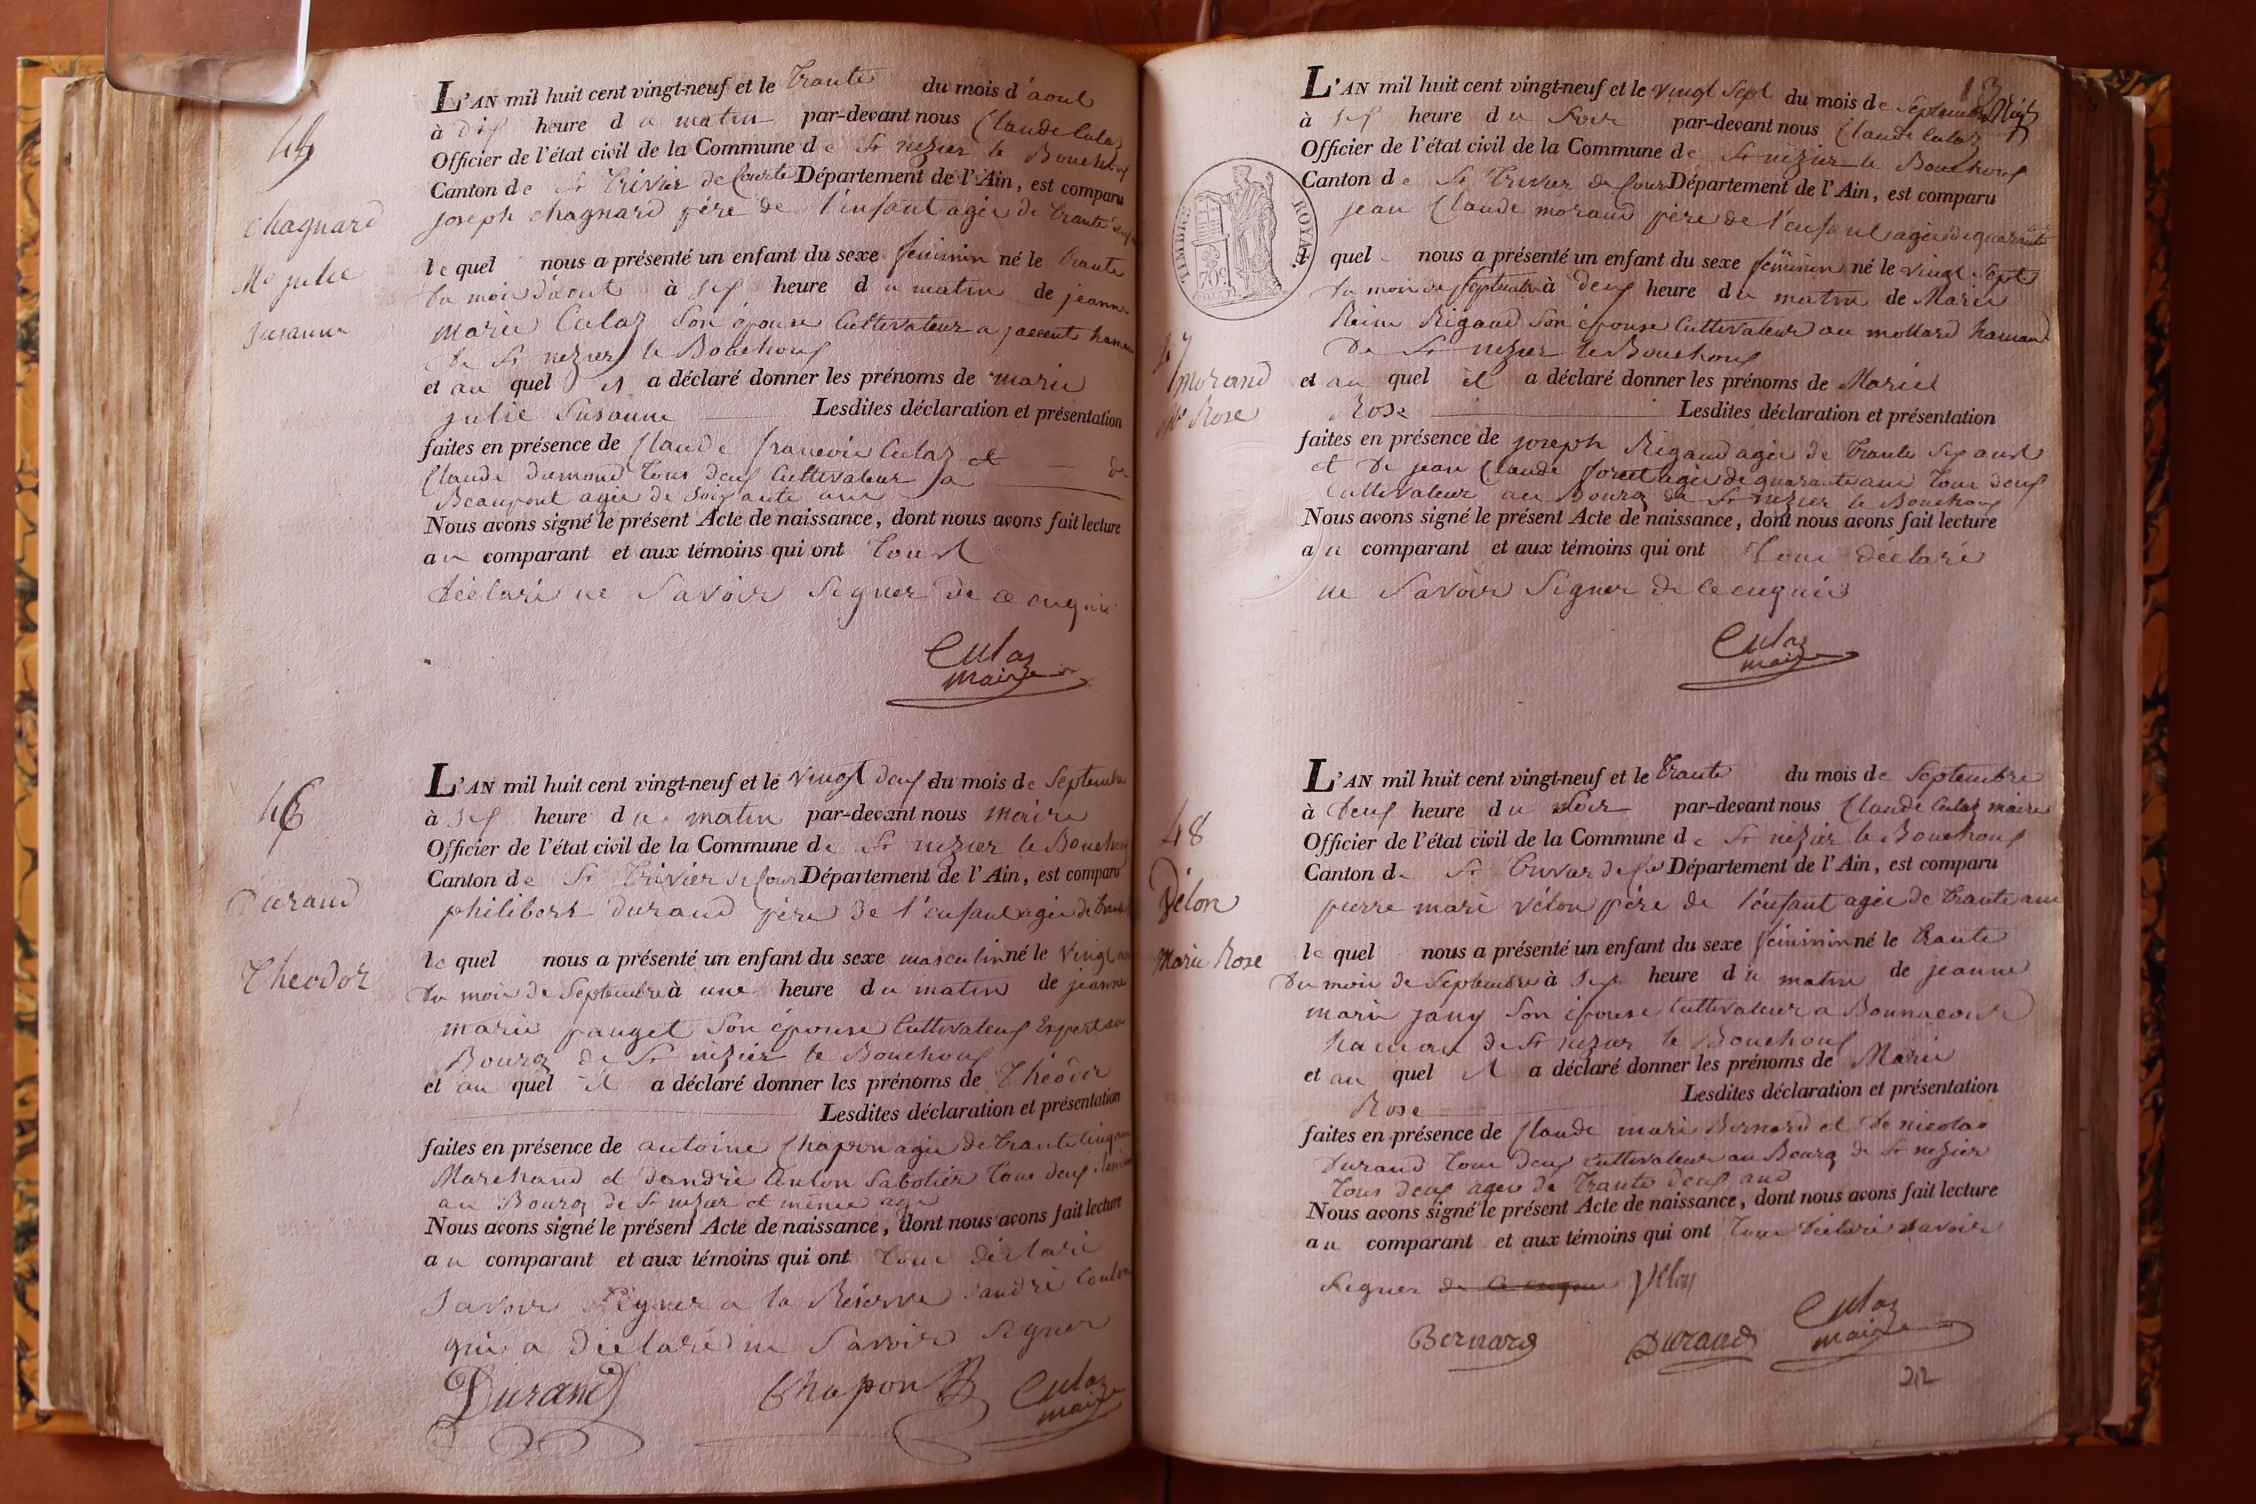 45
chagnard
Me julie
Susanne
L'AN mil huit cent vingt-neuf et le trante du mois d'aout
à dix heure du matin par-devant nous Claude Culaz
Officier de l'état civil de la Commune de St nizier le Bouchoux
Canton de St trivier de Courte Département de l'Ain, est comparu
joseph chagnard père de l'enfant agée de trante
lequel nous a présenté un enfant du sexe feminin né le trante
du mois d'aout à six heure du matin de jeanne
marie Culaz son épouse Cultivateur a
de St nizier le Bouchoux
et au quel il a déclaré donner les prénoms de marie
julie Susanne Lesdites déclaration et présentation
faites en présence de Claude francois Culaz et de
Claude dumond tous deux Cultivateur a
Beaupont agée de soixante ans
Nous avons signé le présent Acte de naissance, dont nous avons fait lecture
au comparant et aux témoins qui ont tous
déclaré ne Savoir Signer de ce enquis
Culaz
maire
46
Durand
Theodor
L'AN mil huit cent vingt-neuf et le vingt deux du mois de Septembre
à six heure du matin par-devant nous maire
Officier de l'état civil de la Commune de St nizier le Bouchoux
Canton de St trivier de Cour Département de l'Ain, est comparu
philibert durand père de l'enfant agée de
lequel nous a présenté un enfant du sexe masculin né le vingt
du mois de Septembre à une heure du matin de jeanne
marie pauget son épouse Cultivateux Expert au
Bourg de St nizier le Bouchoux
et au quel il a déclaré donner les prénoms de théodor
Lesdites déclaration et présentation
faites en présence de antoine Chapon agée de trante cinq
Marchand et dandré Sabotier tous deux
au Bourg de St nizier et même age
Nous avons signé le présent Acte de naissance, dont nous avons fait lecture
au comparant et aux témoins qui ont tous déclaré
Savoir Signer a la Réserve dandré
qui a déclaré ne Savoir Signer
Durand Chapon Culaz
maire
13
TIMBRE ROYAL
L'AN mil huit cent vingt-neuf et le vingt Sept du mois de Septembre
à six heure du Soir par-devant nous Claude Culaz
Officier de l'état civil de la Commune de St nizier le Bouchoux
Canton de St trivier de Cour Département de l'Ain, est comparu
jean Claude morand père de l'enfant agée de quarante
quel nous a présenté un enfant du sexe feminin né le vingt Sept
du mois de Septembre à deux heure du matin de Marie
Reine Rigaud son épouse Cultivateur au mollard hamand
de St nizier le Bouchoux
47
morand
Me Rose
et au quel il a déclaré donner les prénoms de Marie
Rose Lesdites déclaration et présentation
faites en présence de joseph Rigaud agée de trante Six ans
et de jean Claude foret agée de quarante ans tous deux
Cultivateur au Bourg de St nizier le Bouchoux
Nous avons signé le présent Acte de naissance, dont nous avons fait lecture
au comparant et aux témoins qui ont tous déclaré
ne Savoir Signer de ce enquis
Culaz
maire
48
Vélon
Marie Rose
L'AN mil huit cent vingt-neuf et le trante du mois de Septembre
à deux heure du Soir par-devant nous Claude Culaz maire
Officier de l'état civil de la Commune de St nizier le Bouchoux
Canton de St trivier de Département de l'Ain, est comparu
pierre marie vélon père de l'enfant agée de trante ans
lequel nous a présenté un enfant du sexe feminin né le trante
du mois de Septembre à six heure du matin de jeanne
marie jany son épouse Cultivateur a Bonnacour
hamau de St nizier le Bouchoux
et au quel il a déclaré donner les prénoms de Marie
Rose Lesdites déclaration et présentation
faites en présence de Claude marie Bernard et de nicolas
durand tous deux Cultivateur au Bourg de St nizier
tous deux agée de trante deux ans
Nous avons signé le présent Acte de naissance, dont nous avons fait lecture
au comparant et aux témoins qui ont tous déclaré Savoir
Signer de ce enquis Vélon
Bernard Durand Culaz
maire
212